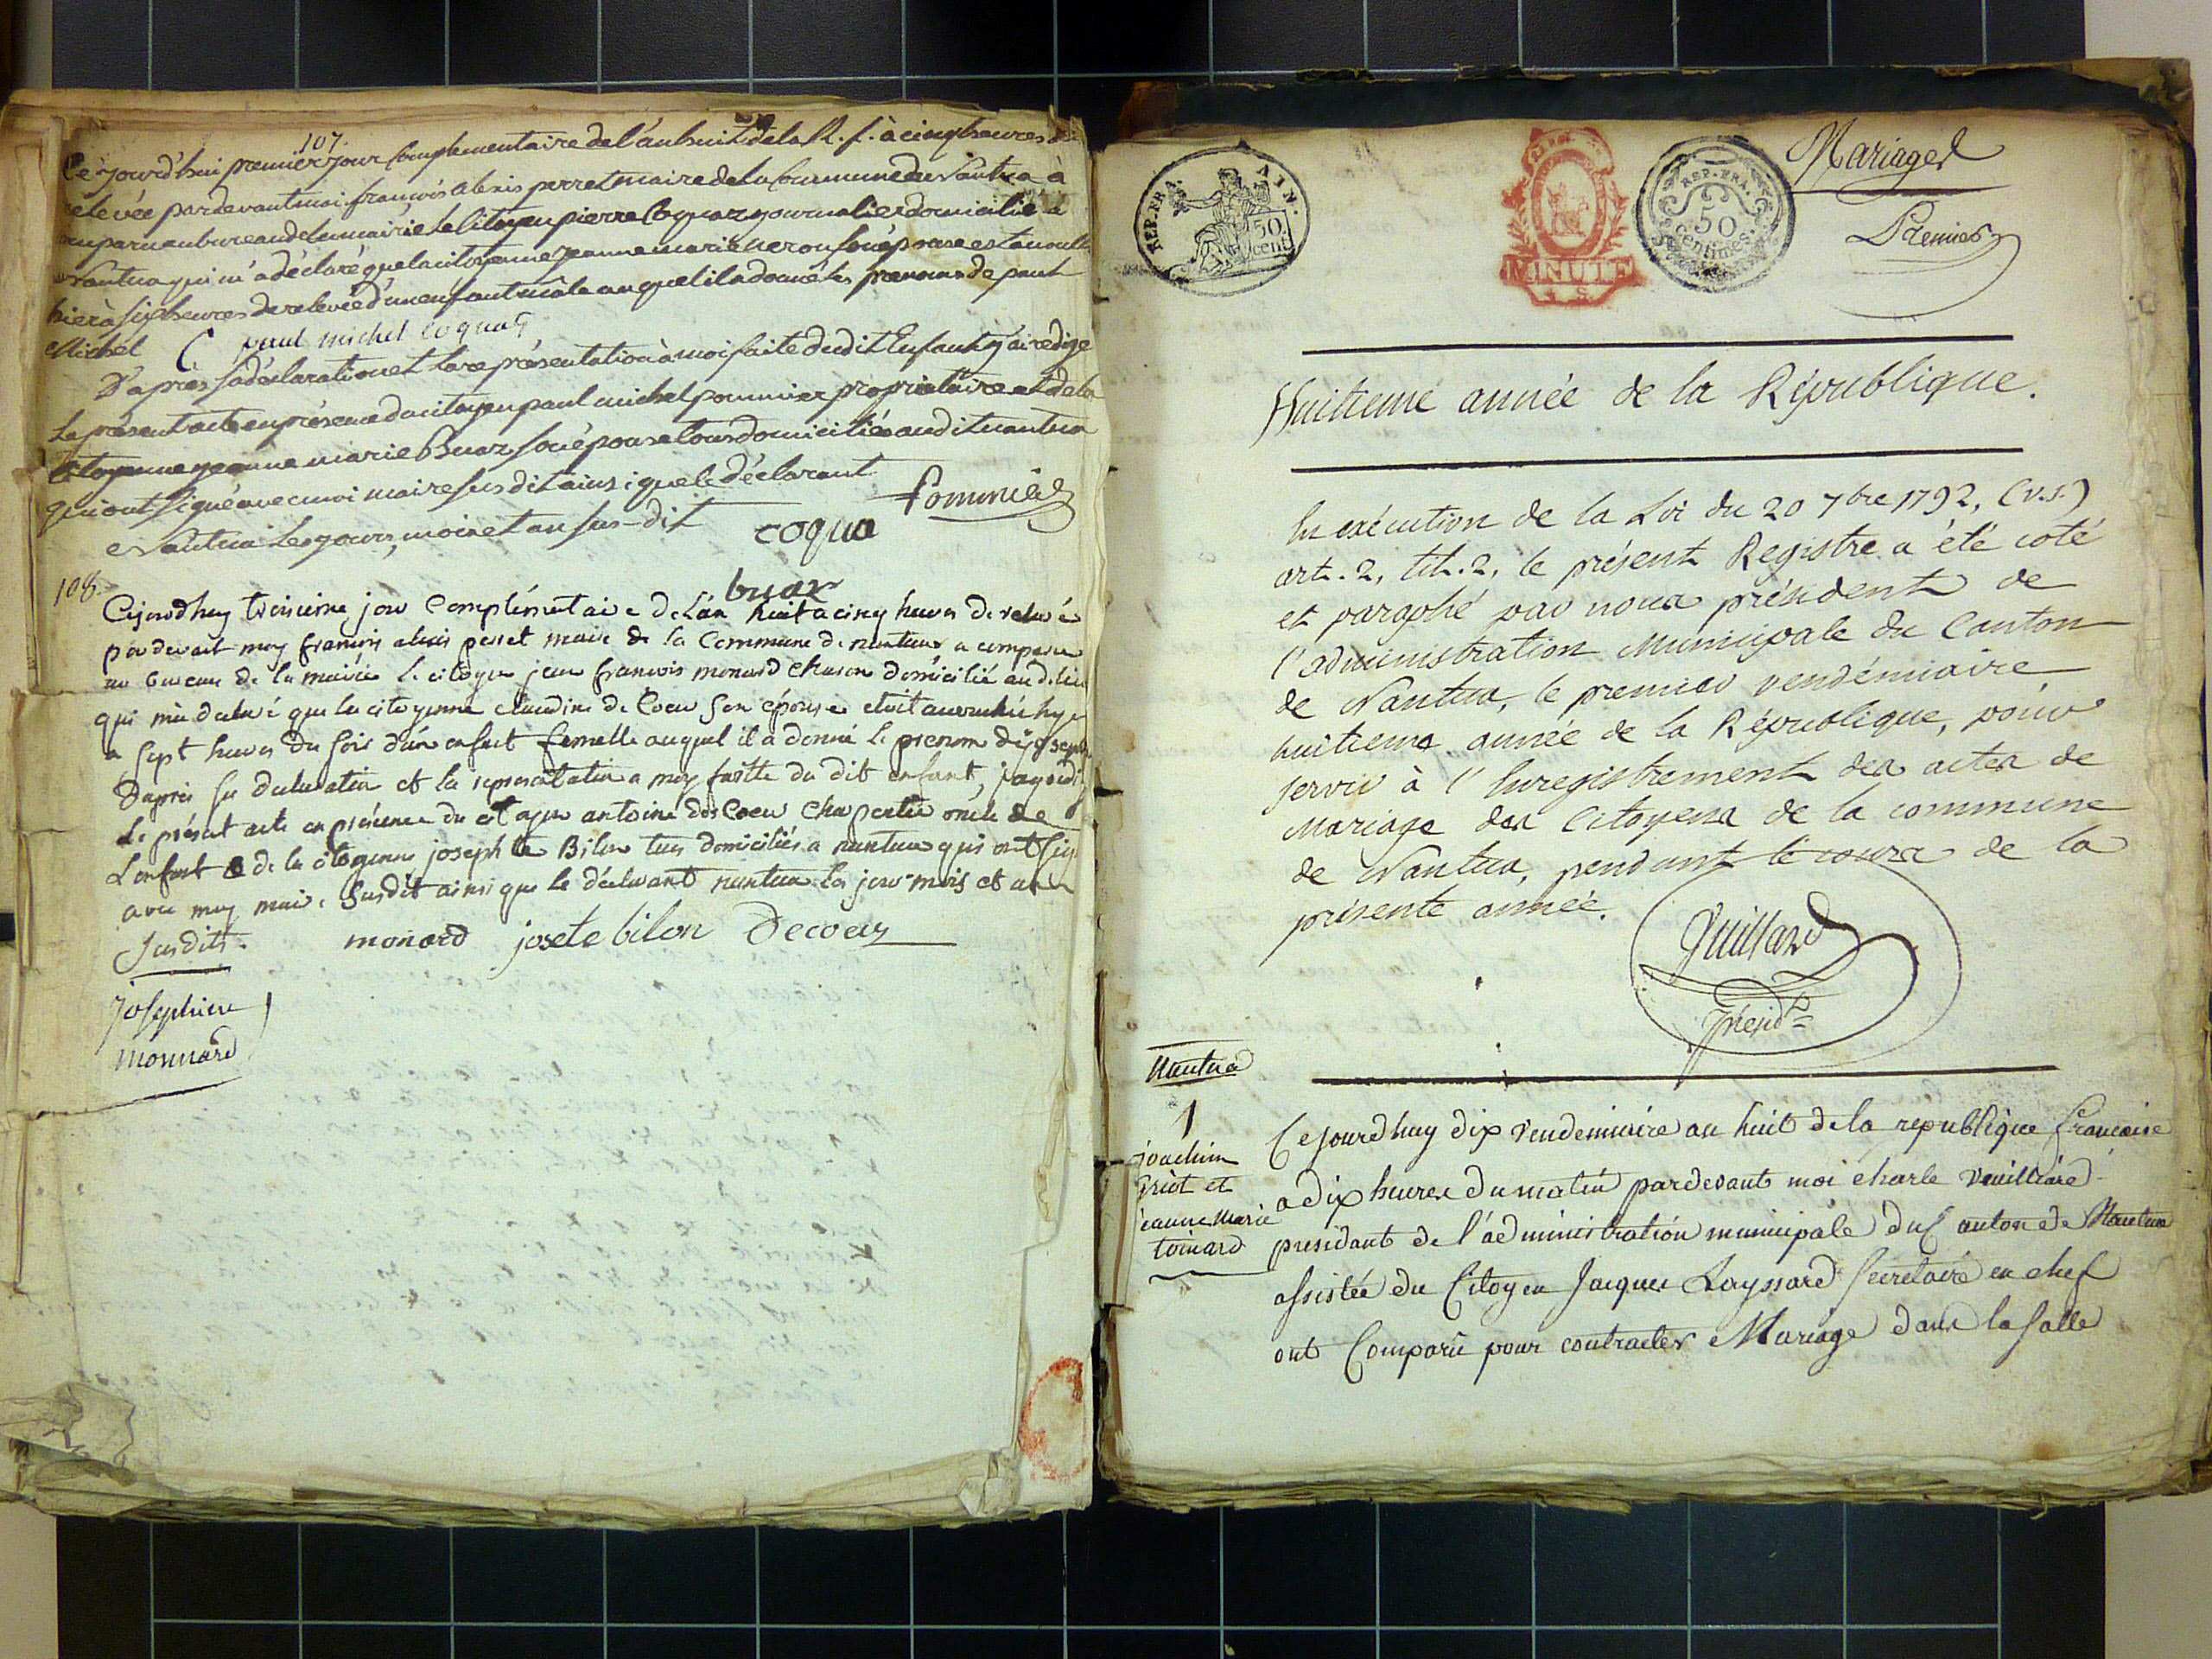 107.
Ce-jourd'hui premier jour Complementaire de l'an huit de la R. f. à cinq heures de
relevée pardevant moi françois alexis perret maire de la Commune de Nantua à
comparu au bureau de la mairie le Citoyen pierre Coquaz journalier domicilié à
Nantua qui m'a déclaré que la citoyenne jeanne marie neron son épouse est accouchée
hier à six heures de relevée d'un enfant mâle auquel il a donné les prenoms de paul
Michel paul michel coquaz
D'après sa déclaration et la représentation à moi faite dudit Enfant j'ai redigé
Le présent acte en présence du citoyen paul michel pommier propriétaire et de la
Citoyenne jeanne marie Buaz son épouse tous domiciliés audit nantua
qui ont signé avec moi maire susdit ainsi que le déclarant
Nantua les jours, mois et an sus-dit
coqua Pommier
buaz
108
Cejourdhuy troisieme jour Complémentaire De L'an huit a cinq heures De relevée
par devant moy françois alexis perret maire de la Commune de nantua a comparu
au bureau de la mairie le citoyen jean francois monard domicilié au d. lieu
qui m'a declaré que la citoyenne claudine de Coeur son épouse etoit accouchée hyer
a sept heures du soir d'un enfant femelle auquel il a donné le prenom de josephine
Daprès sa declaration et la representation a moy faitte du dit enfant, j'ay redigé
Le présent acte en présence du citoyen antoine des Coeur Charpentier oncle de
L'enfant & de la citoyenne josephte Bilon tous domiciliés a nantua qui ont signé
avec moy maire susdit ainsi que le déclarant nantua les jour mois et an
susdits.
monard josete bilon Decoeur
Josephine
monnard
REP. FRA. AIN.
50 cent
MINUTE
REP. FRA.
50
centimes
Mariages
Premier
Huitieme année de la République.
En exécution de la Loi du 20 7bre 1792, (v.s.)
art. 2, tit. 2, le présent Registre a été coté
et paraphé par nous président de
l'administration Municipale du Canton
de Nantua, le premier vendémiaire
huitieme année de la République, pour
servir à l'Enregistrement des actes de
Mariage des Citoyens de la commune
de Nantua, pendant le cours de la
présente année.
Présidt
Nantua
1
joachim
griot et
jeanne Marie
toinard
Cejourdhuy dix Vendemiaire an huit de la republique francaise
a dix heures du matin pardevant moi charle
presidant de l'administration municipale du Canton de Nantua
assistée du Citoyen Jacques Layssard Secretaire en chef
ont Comparu pour contracter Mariage dans la salle